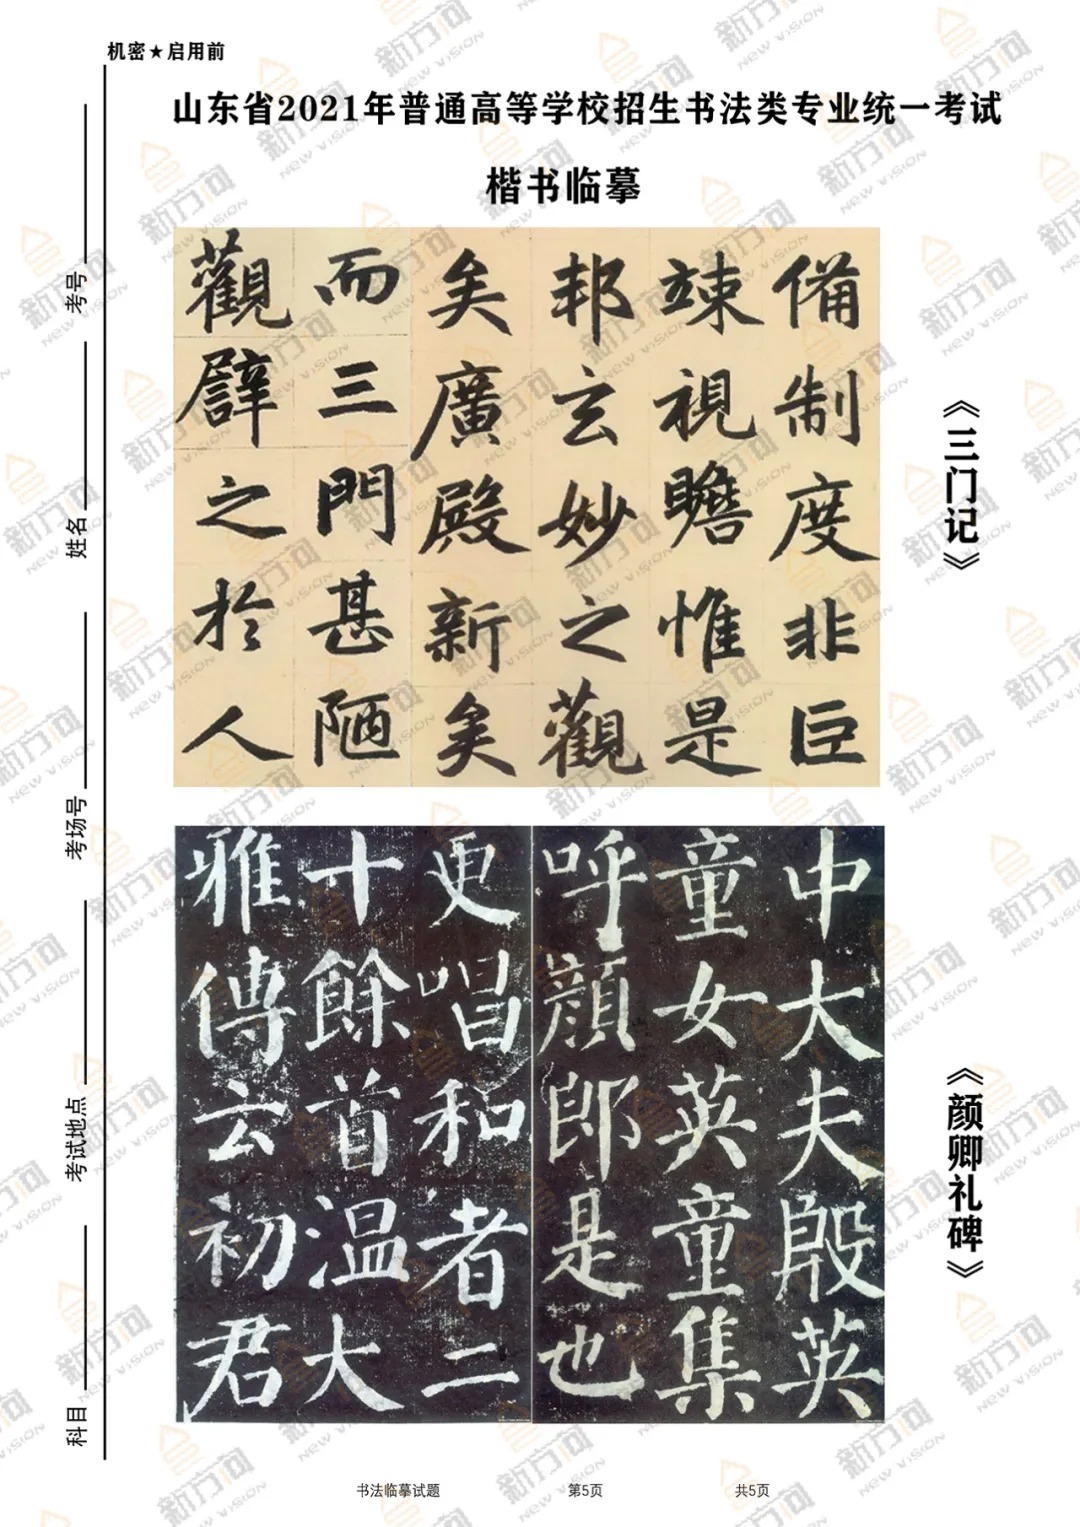 机密★启用前
山东省2021年普通高等学校招生书法类专业统一考试
楷书临摹
備制度非巨
竦視瞻惟是
邦玄妙之觀
矣廣殿新矣
而三門甚陋
觀譬之於人
《三门记》
中大夫殷英
童女英童集
呼顏郎是也
更唱和者二
十餘首溫大
雅傳云初君
《颜卿礼碑》
考号
姓名
考场号
考试地点
科目
书法临摹试题 第5页 共5页
新方向
NEW VISION